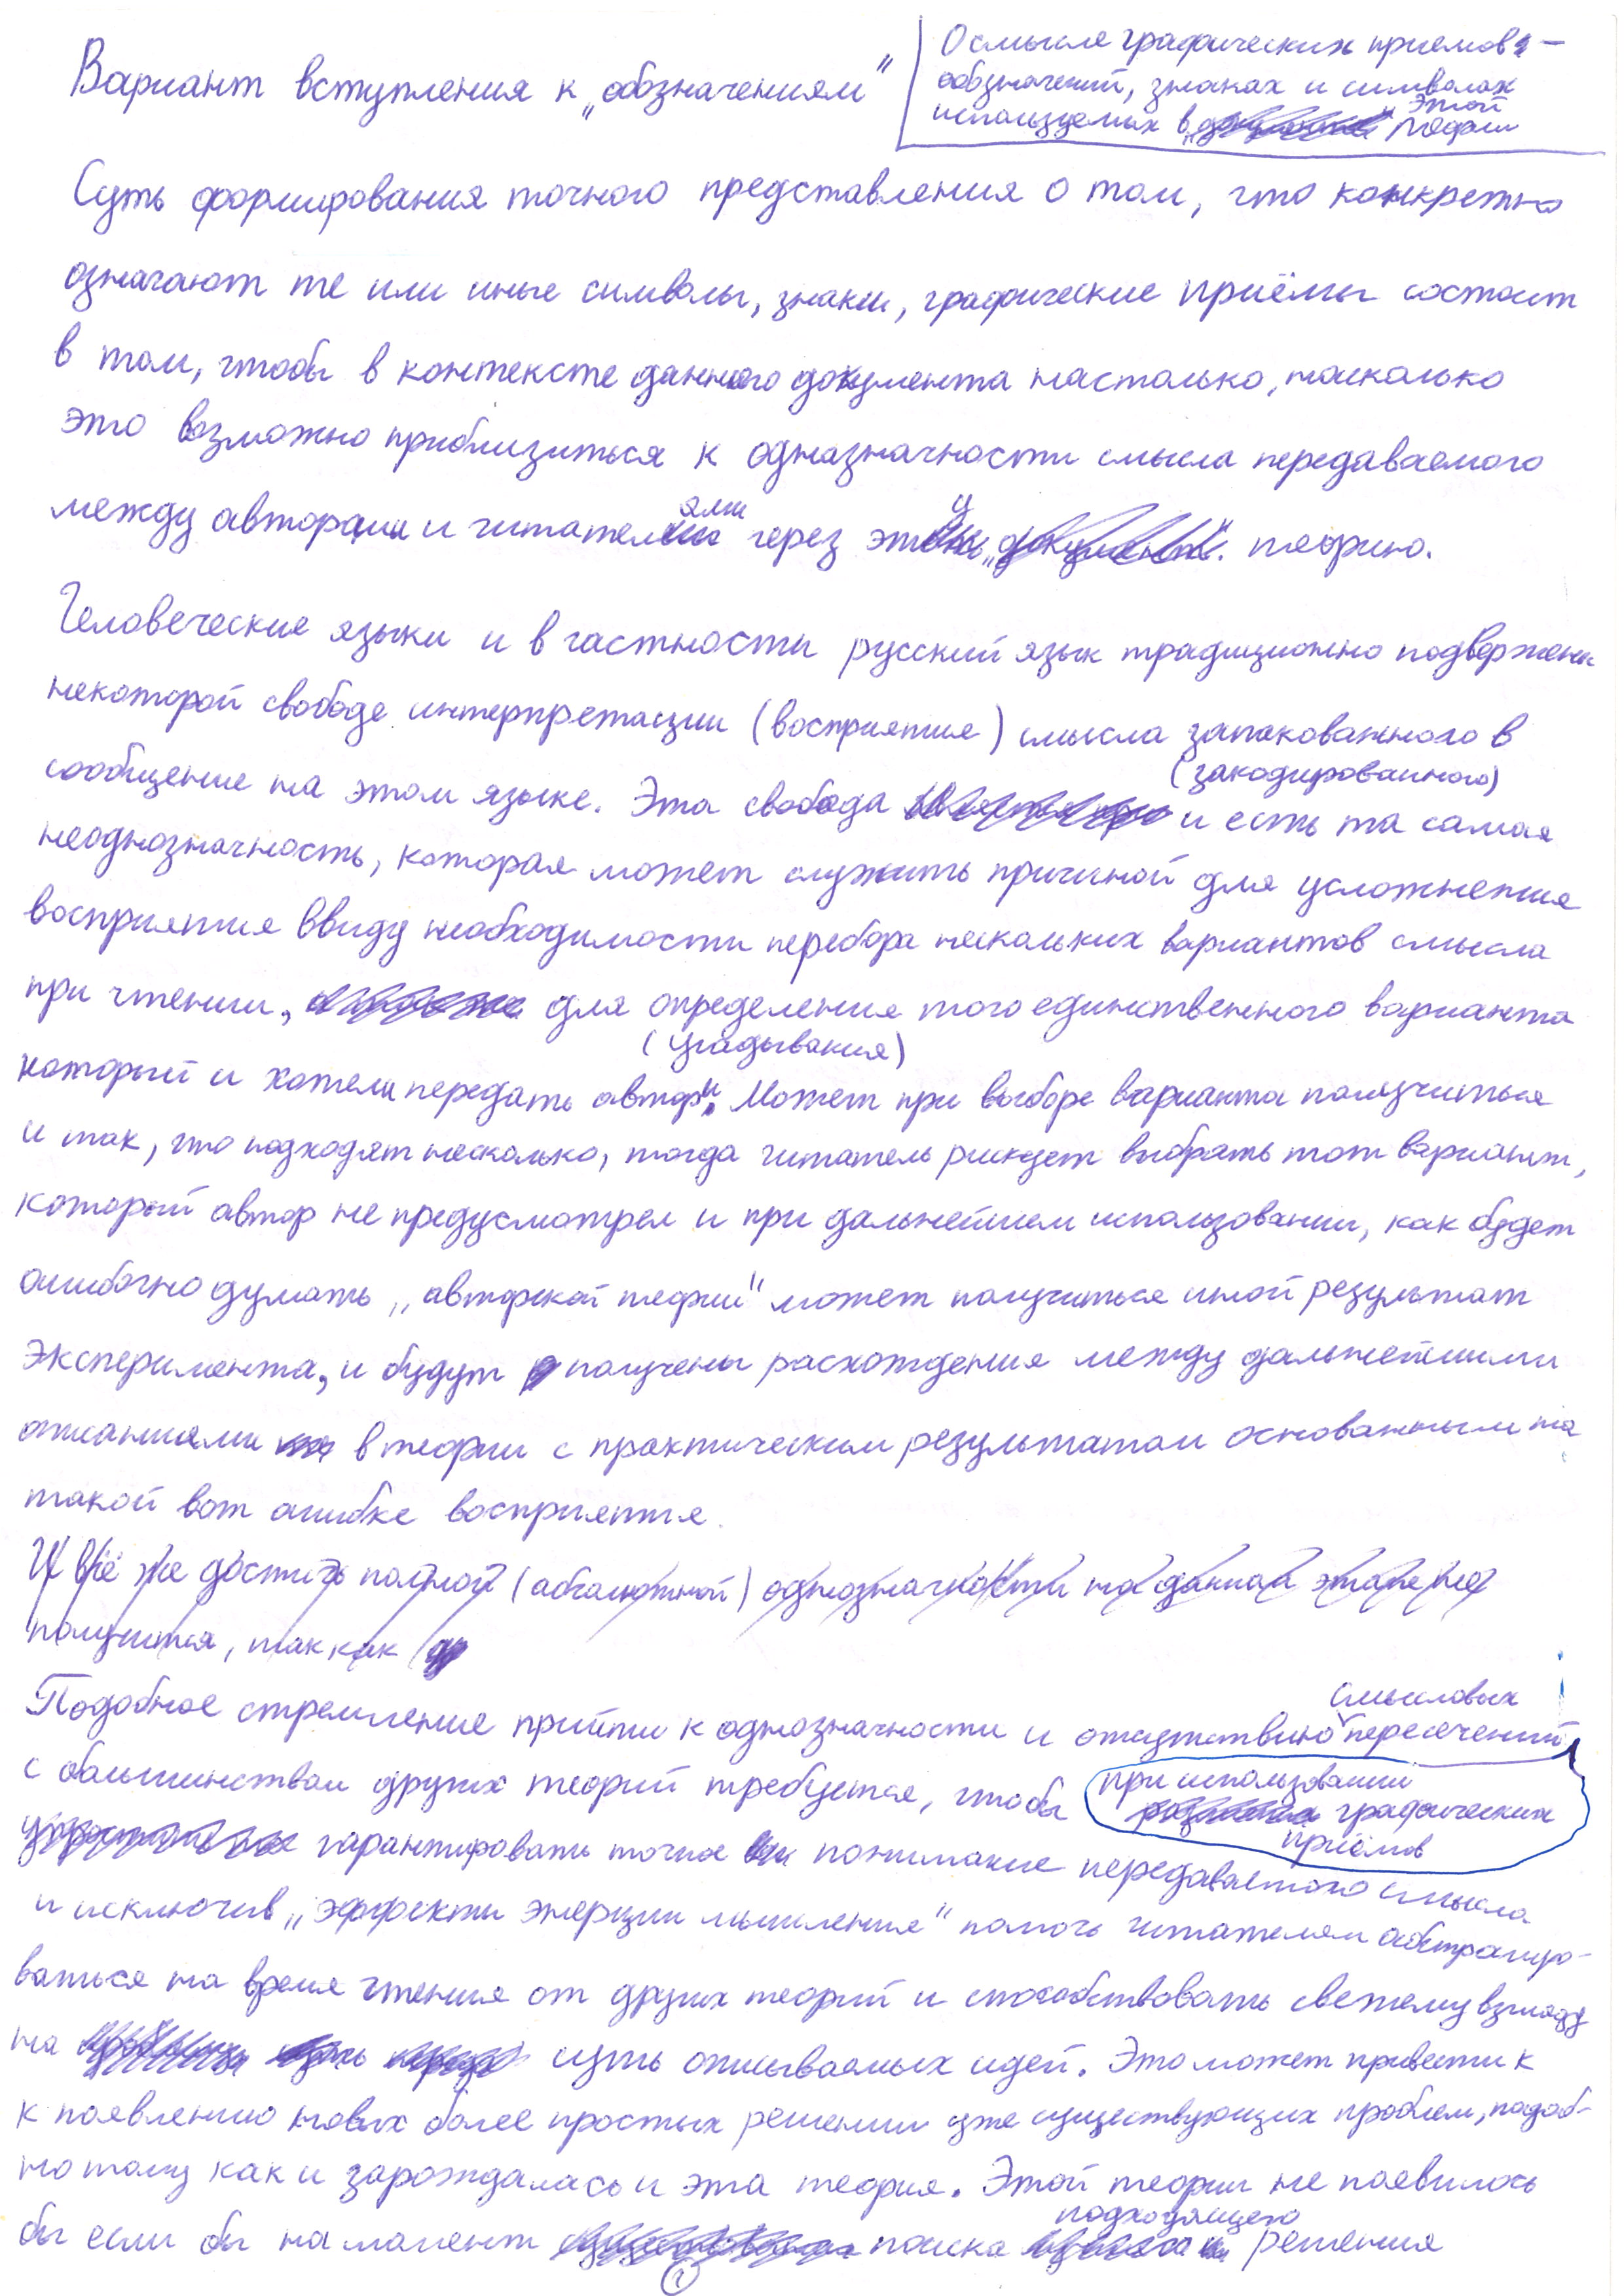 Вариант вступления к „обозначениям"
О смысле графических приемов, –
обозначений, знаках и символах
используемых в этой теории
Суть формирования точного представления о том, что конкретно
означают те или иные символы, знаки, графические приёмы состоит
в том, чтобы в контексте данного документа настолько, насколько
это возможно приблизиться к однозначности смысла передаваемого
между авторами и читателями через эту теорию.
Человеческие языки и в частности русский язык традиционно подвержены
некоторой свободе интерпретации (восприятия) смысла запакованного в
(закодированного)
сообщение на этом языке. Эта свобода и есть та самая
неоднозначность, которая может служить причиной для усложнения
восприятия ввиду необходимости перебора нескольких вариантов смысла
при чтении, для определения того единственного варианта
(угадывания)
который и хотели передать авторы. Может при выборе варианта получиться
и так, что подходят несколько, тогда читатель рискует выбрать тот вариант,
который автор не предусмотрел и при дальнейшем использовании, как будет
ошибочно думать, „авторской теории" может получиться иной результат
эксперимента, и будут получены расхождения между дальнейшими
описаниями в теории с практическим результатом основанным на
такой вот ошибке восприятия.
И всё же достичь полной (абсолютной) однозначности на данном этапе не
получится, так как
Подобное стремление прийти к однозначности и отсутствию смысловых пересечений
с большинством других теорий требуется, чтобы при использовании
графических
приёмов
гарантировать точное понимание передаваемого смысла
и исключив „эффекты энерции мышления" помочь читателям абстрагиро-
ваться на время чтения от других теорий и способствовать свежему взгляду
на суть описываемых идей. Это может привести к
к появлению новых более простых решений уже существующих проблем, подоб-
но тому как и зарождалась и эта теория. Этой теории не появилось
бы если бы на момент поиска подходящего решения
1